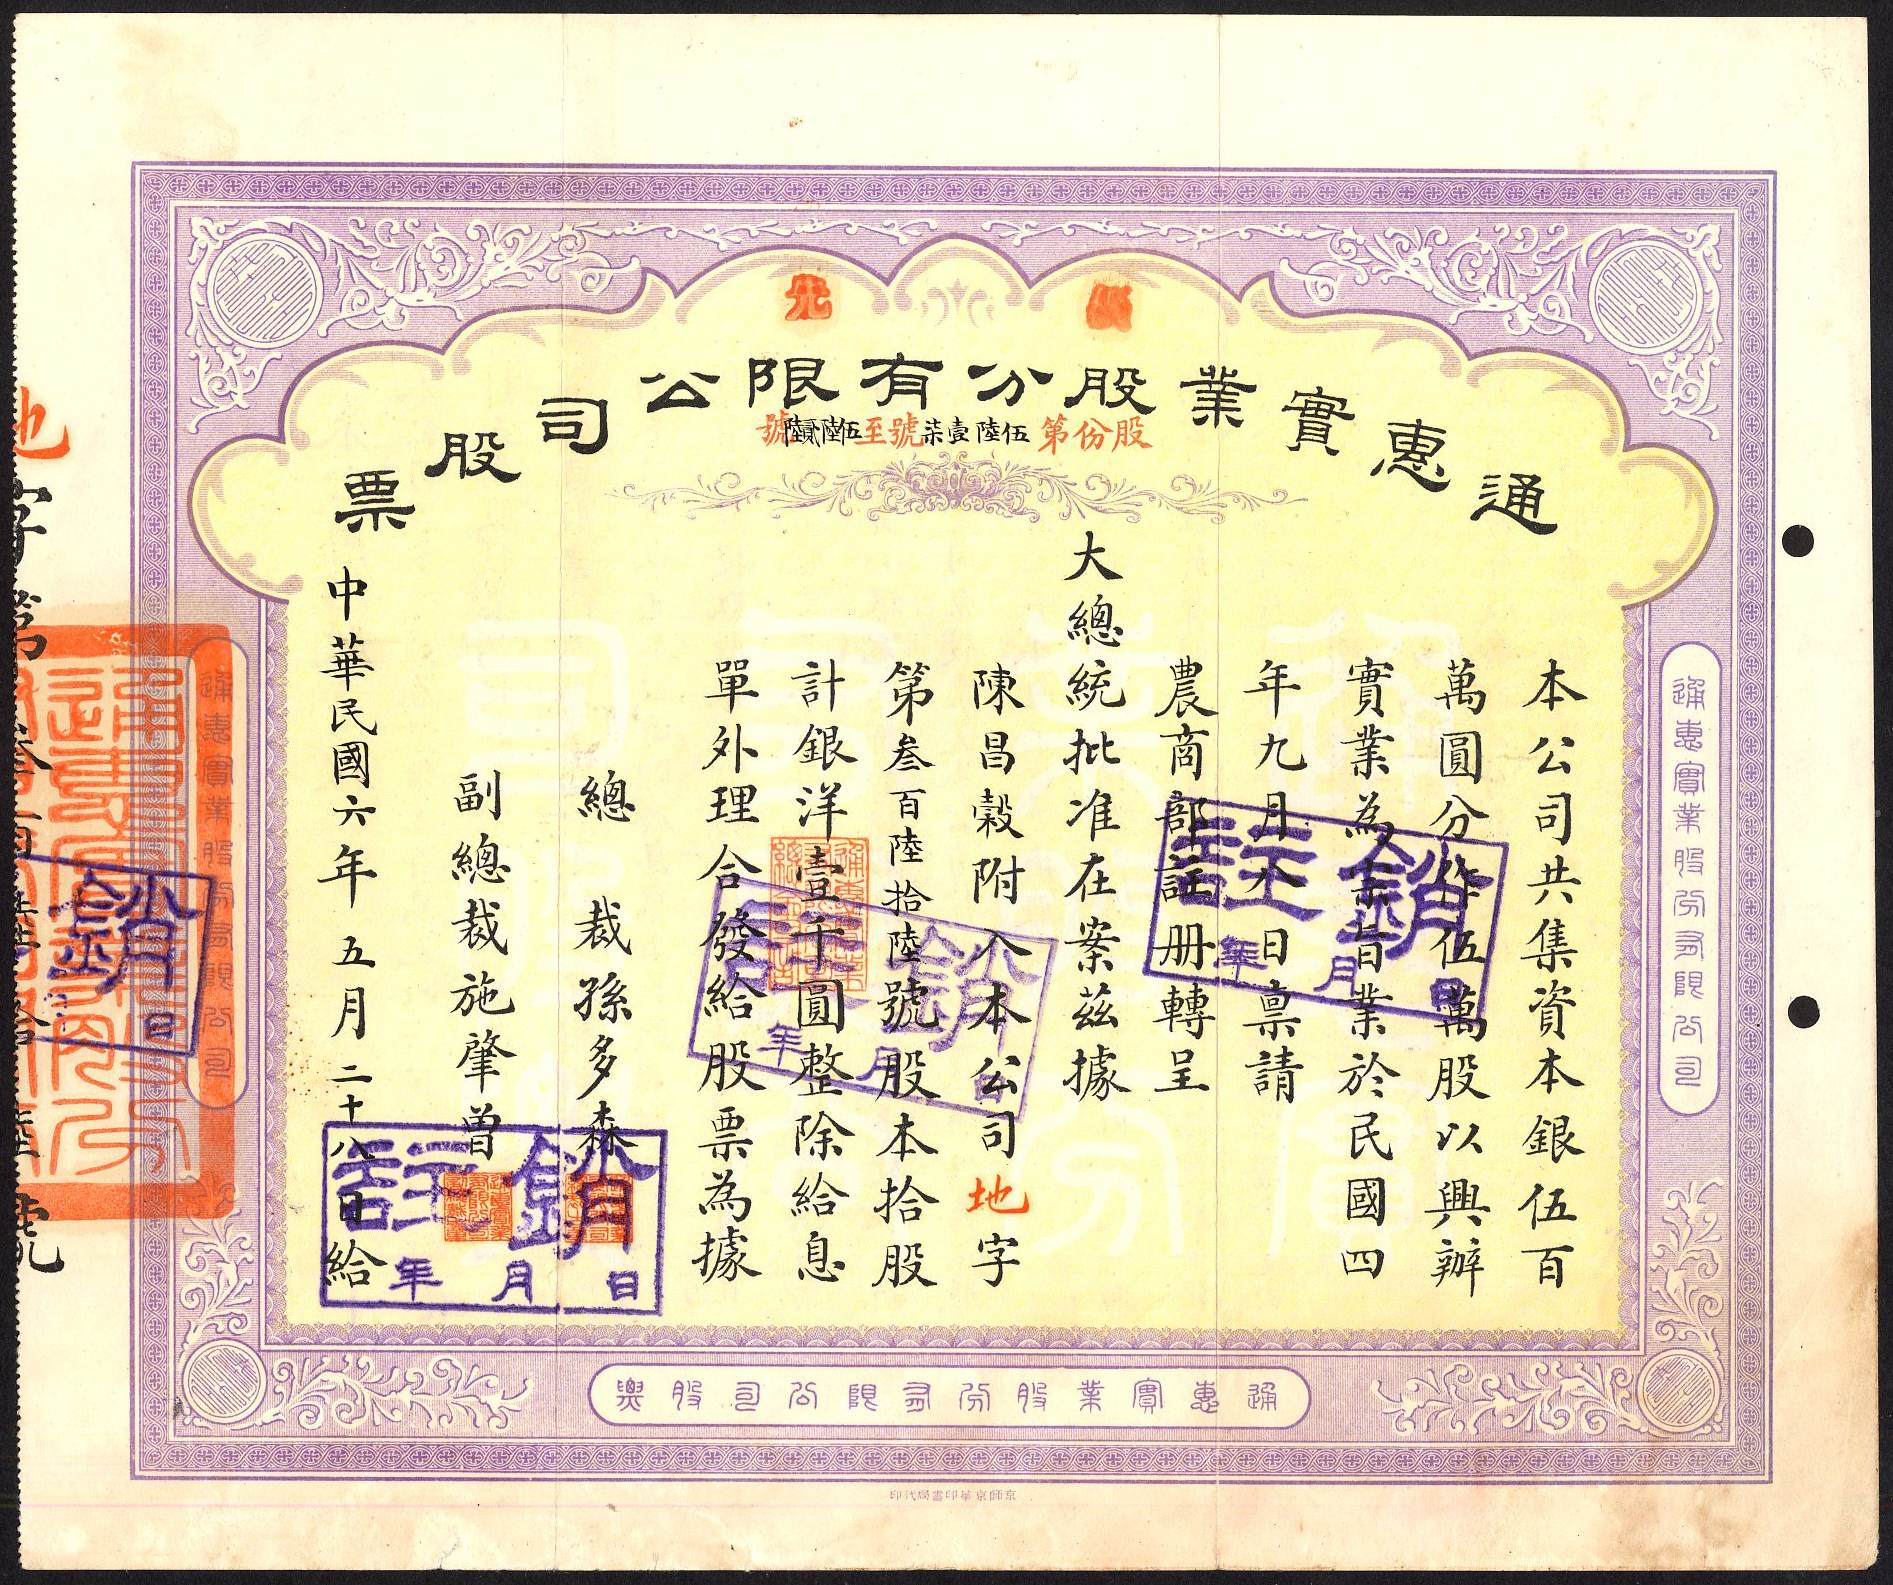 優先
通惠實業股分有限公司股票
股份第伍陸壹柒號至伍陸貳陸號
本公司共集資本銀伍百
萬圓分作伍萬股以興辦
實業為宗旨業於民國四
年九月八日稟請
農商部註册轉呈
大總統批准在案茲據
陳昌穀附入本公司地字
第叁百陸拾陸號股本拾股
計銀洋壹千圓整除給息
單外理合發給股票為據
總裁孫多森
副總裁施肇曾
中華民國六年五月二十八日給
註銷
年月日
註銷
年月日
註銷
年月日
銷
日
地字第叁百陸拾陸號
通惠實業股份有限公司
通惠實業股份有限公司
通惠實業股份有限公司股票
通惠實業
股份有限公司
京師京華印書局代印